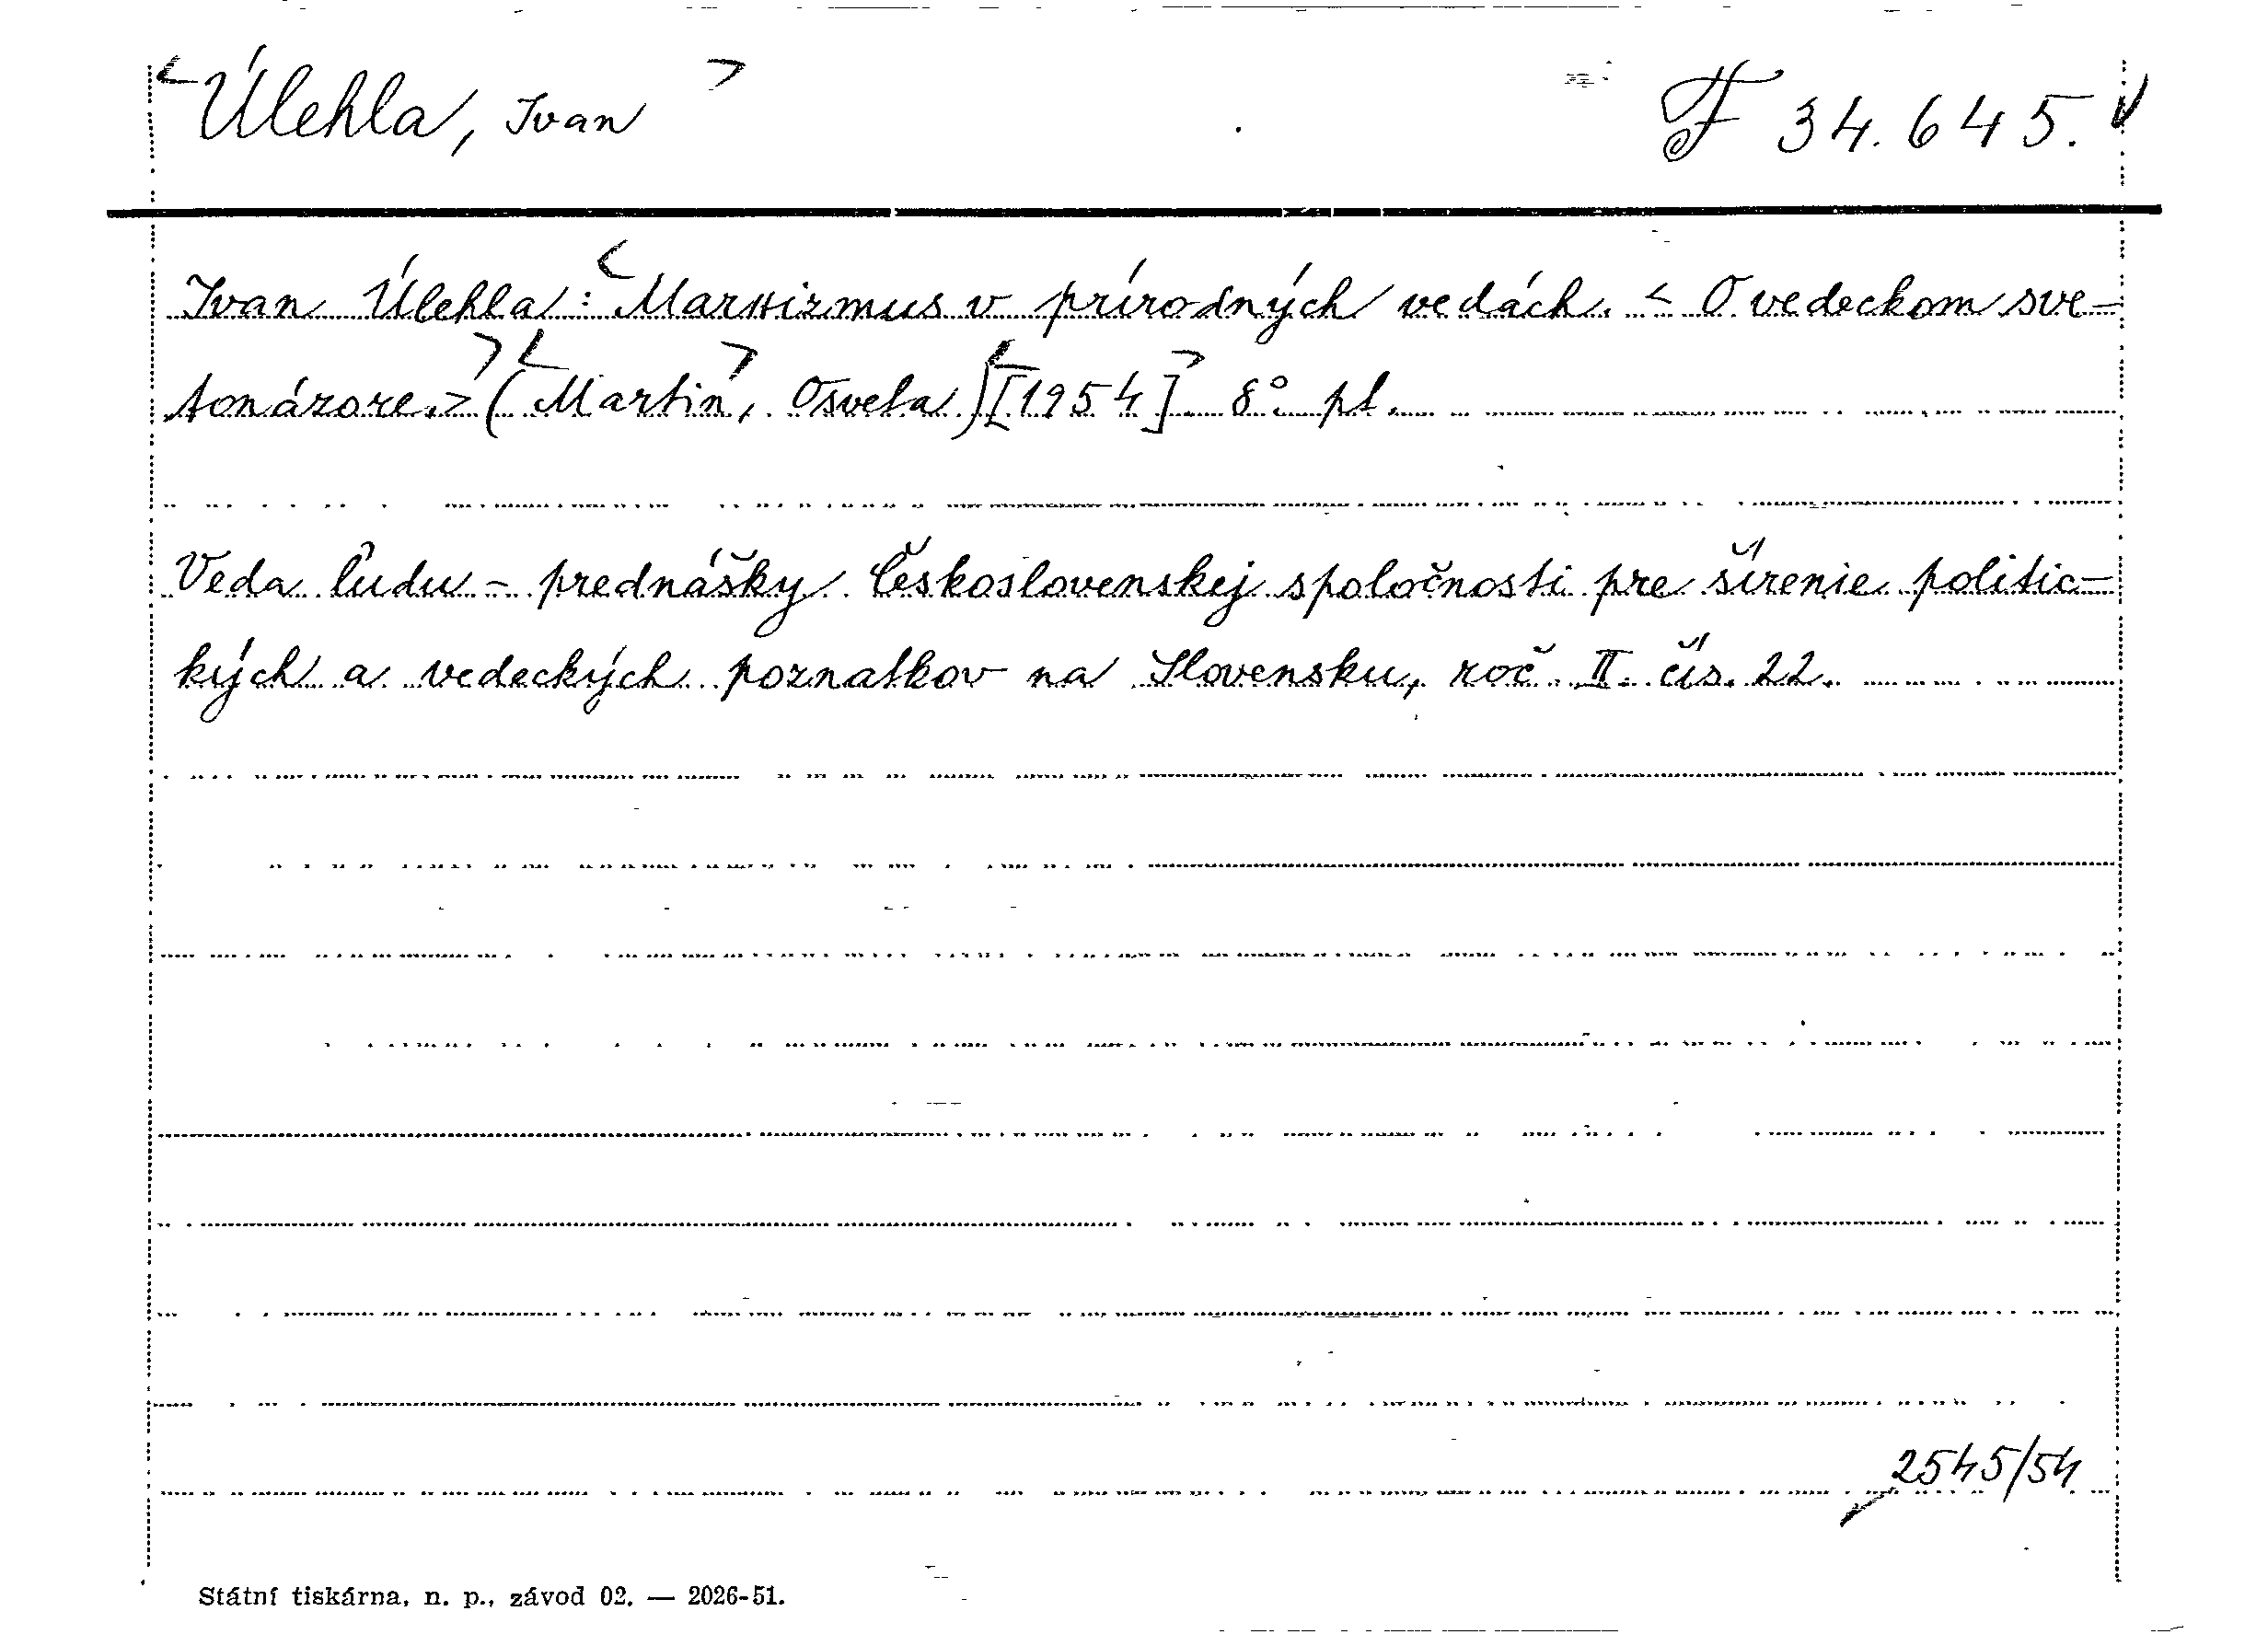 <Úlehla, Ivan> F 34.645.
Ivan Úlehla: <Marxizmus v prírodných vedách. < O vedeckom sve-
tonázore.>> (<Martin>, Osveta) <[1954]>. 8° pl.
Veda ľudu - prednášky Československej spoločnosti pre šírenie politic-
kých a vedeckých poznatkov na Slovensku, roč. II. čís. 22.
2545/54
Státní tiskárna, n. p., závod 02. — 2026-51.